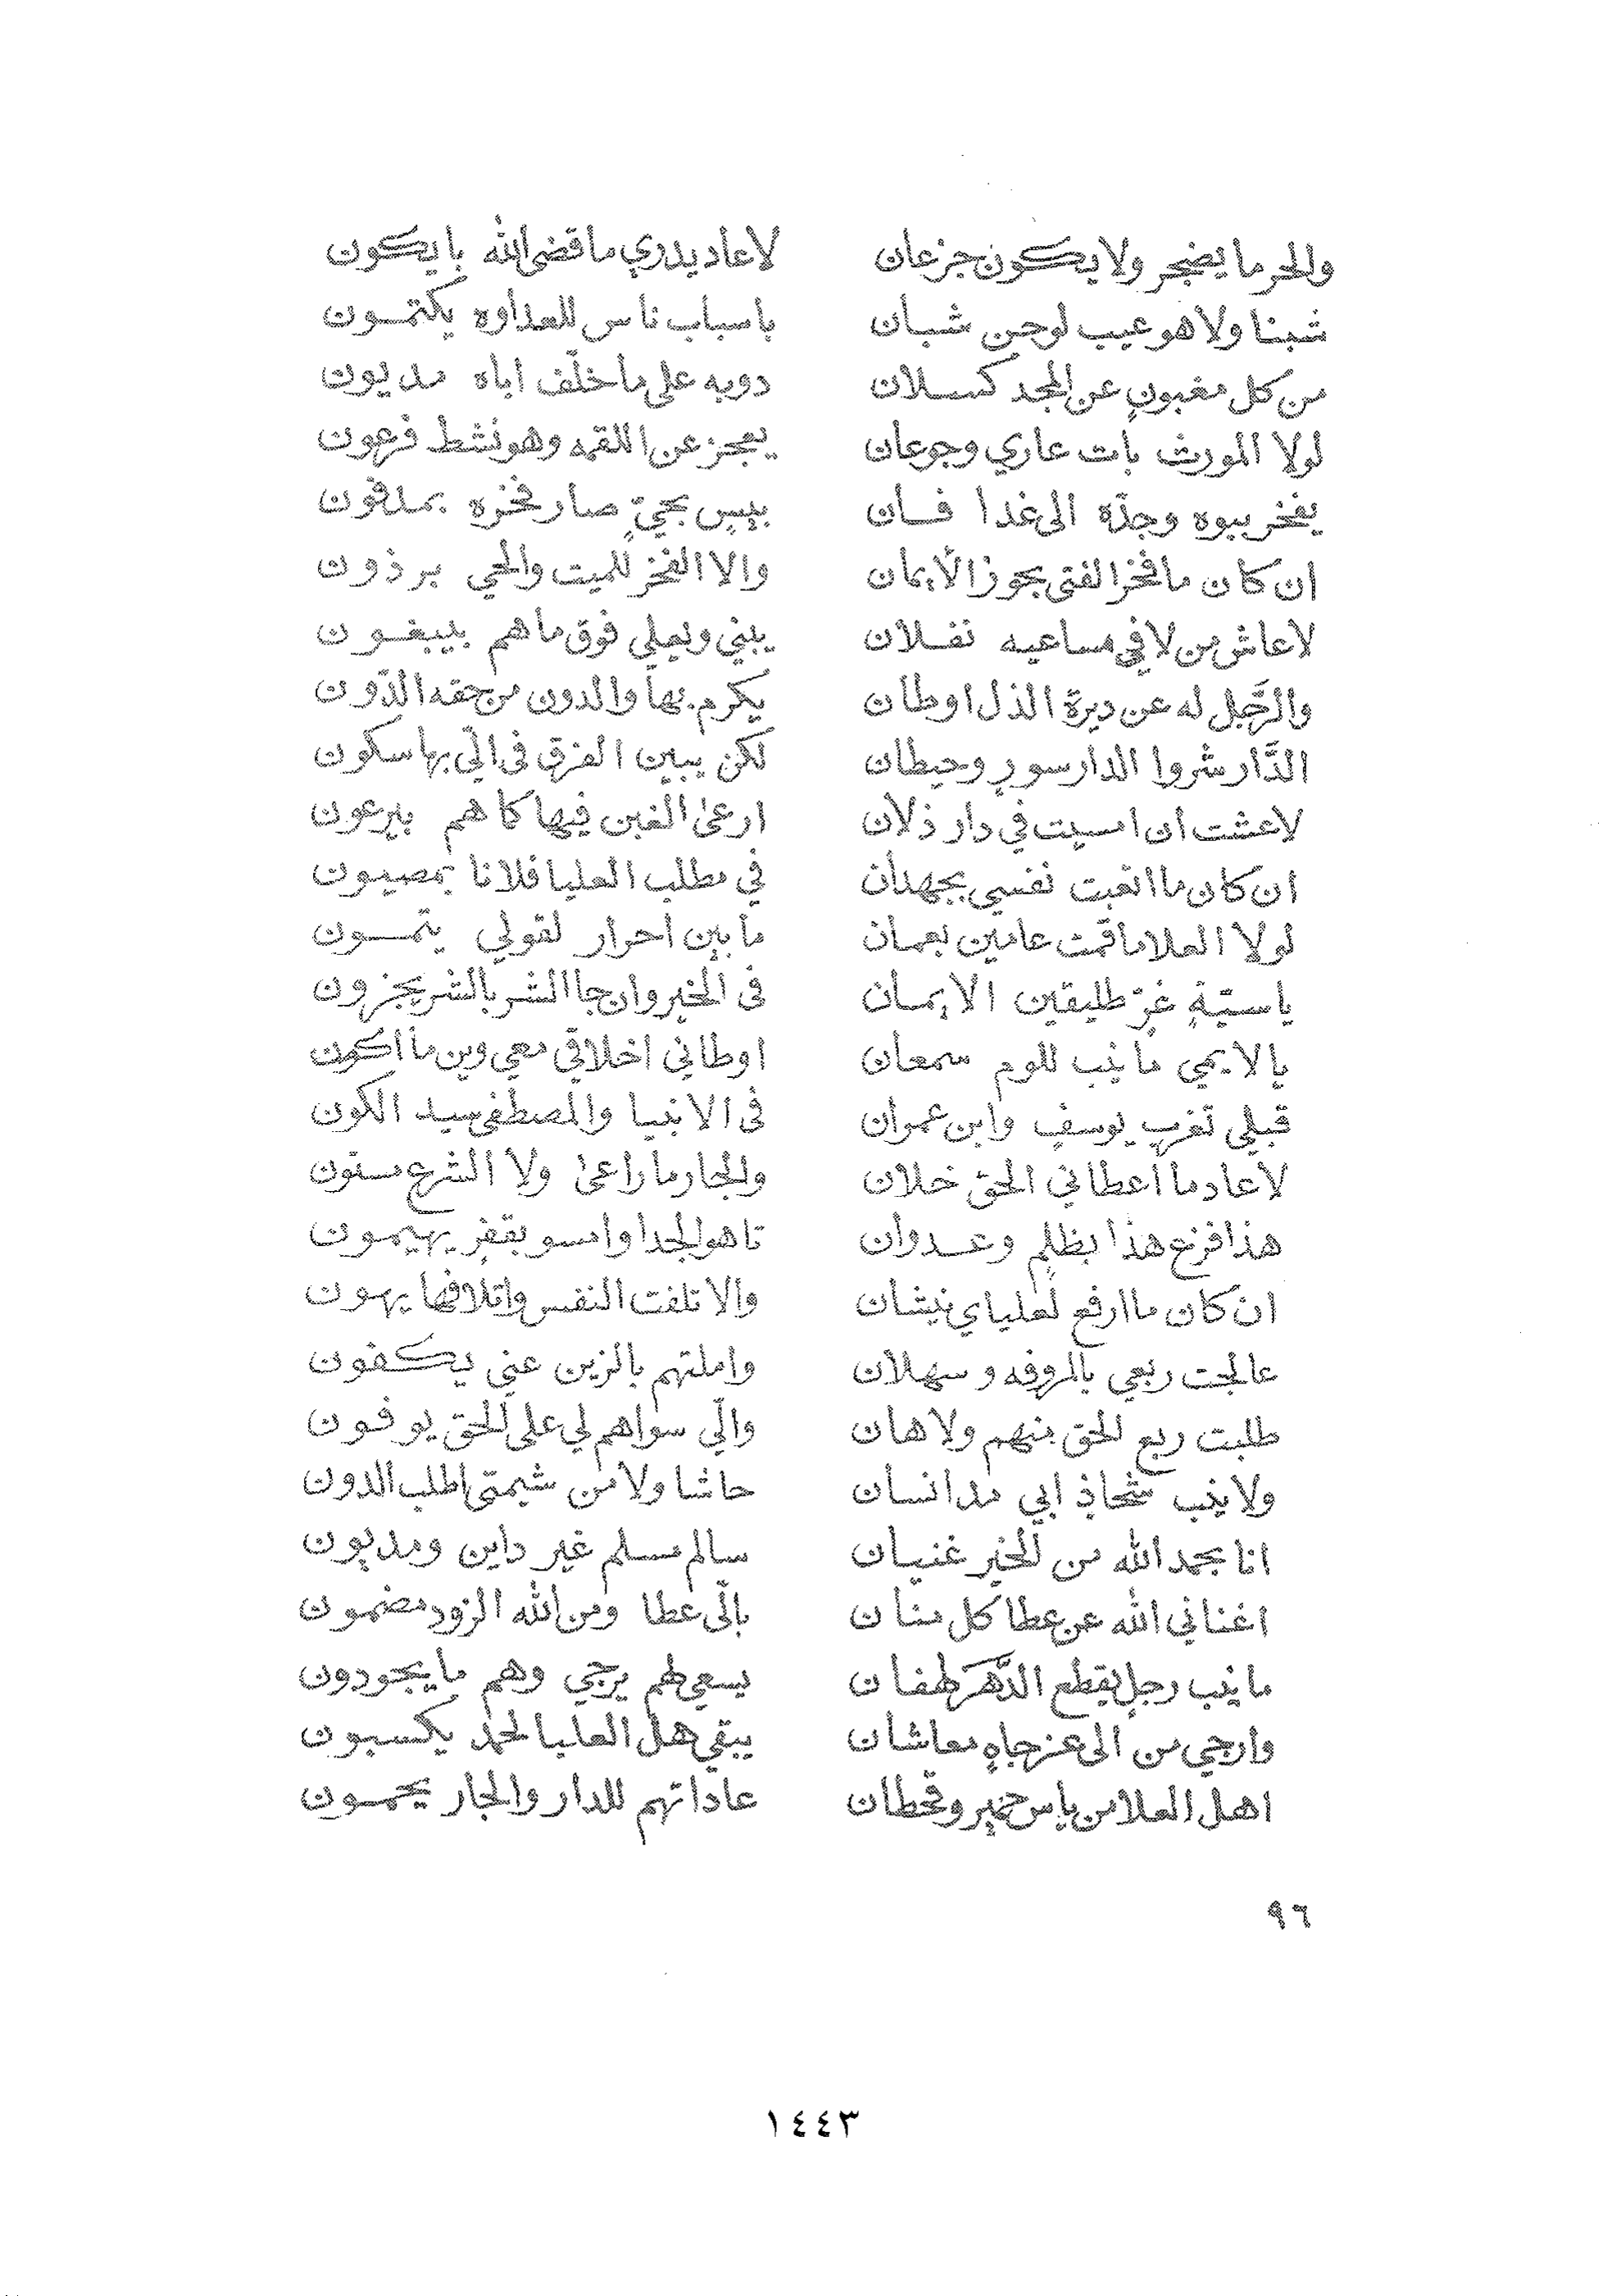 والحر ما يضجر ولا يكون جزعان لا عاد يدري ما قضى الله بايكون
شبنا ولا هو عيب لوحن شبان باسباب ناس للعداوه يكتمون
من كل مغبونٍ عن المجد كسلان دوبه على ما خلّف اباه مديون
لولا المورث بات عاري وجوعان يعجز عن اللقمه وهو نشط فرعون
يفخر ببوه وجدّه الى غدا فان بيبس بجيّ صار فخره بمدفون
ان كان ما فخر الفتى بجوز الأيمان والا الفخر للميت والحي برذون
لا عاش من لا في مساعيه نفلان يبني ويعلي فوق ما هم بيبغون
والرَّجل له عن ديرة الذل اوطان يكرم بها والدون من حقه الدّون
الدَّار شروا الدار سورٍ وحيطان لكن يبين الفرق في الّي بها سكون
لا عشت ان امسيت في دار ذلان ارعى الغبن فيها كما هم بيرعون
ان كان ما اتعبت نفسي بجهدان في مطلب العليا فلانا بمصيون
لولا العلا ما قمت عامين بعمان ما بين احرار لقولي يتمون
ياستّةٍ غرّ طليقين الايمان في الخير وان جا الشر بالشر يجزون
يا لايمي مانيب للوم سمعان اوطاني اخلاقي معي وين ما أكون
قبلي تغرب يوسفٍ وابن عمران في الانبيا والمصطفى سيد الكون
لا عاد ما اعطاني الحق خلان والجار ما راعى ولا الشرع مسنون
هذا فزع هذا بظلمٍ وعدوان تاهو الجدا وامسو بقفرٍ يهيمون
ان كان ما ارفع لعلياي نيشان والا تلفت النفس واتلافها يهون
عالجت ربعي بالمروفه وسهلان واملتهم بالزين عني يكفون
طلبت ربع الحق منهم ولا هان والّي سواهم لي على الحق يوفون
ولانيب شحّاذٍ ابي مد انسان حاشا ولا من شيمتي اطلب الدون
انا بحمد الله من الخير غنيان سالم مسلم غير داين ومديون
اغناني الله عن عطا كل منان بالّي عطا ومن الله الزود مضمون
مانيب رجلٍ يقطع الدَّهر طفان يسعى لهم يرجي وهم ما يجودون
وارجي من الى عز جاهٍ معاشان يبقي هل العليا لحمد يكسبون
اهل العلا من ياس حمير وقحطان عاداتهم للدار والجار يحمون
٩٦
١٤٤٣